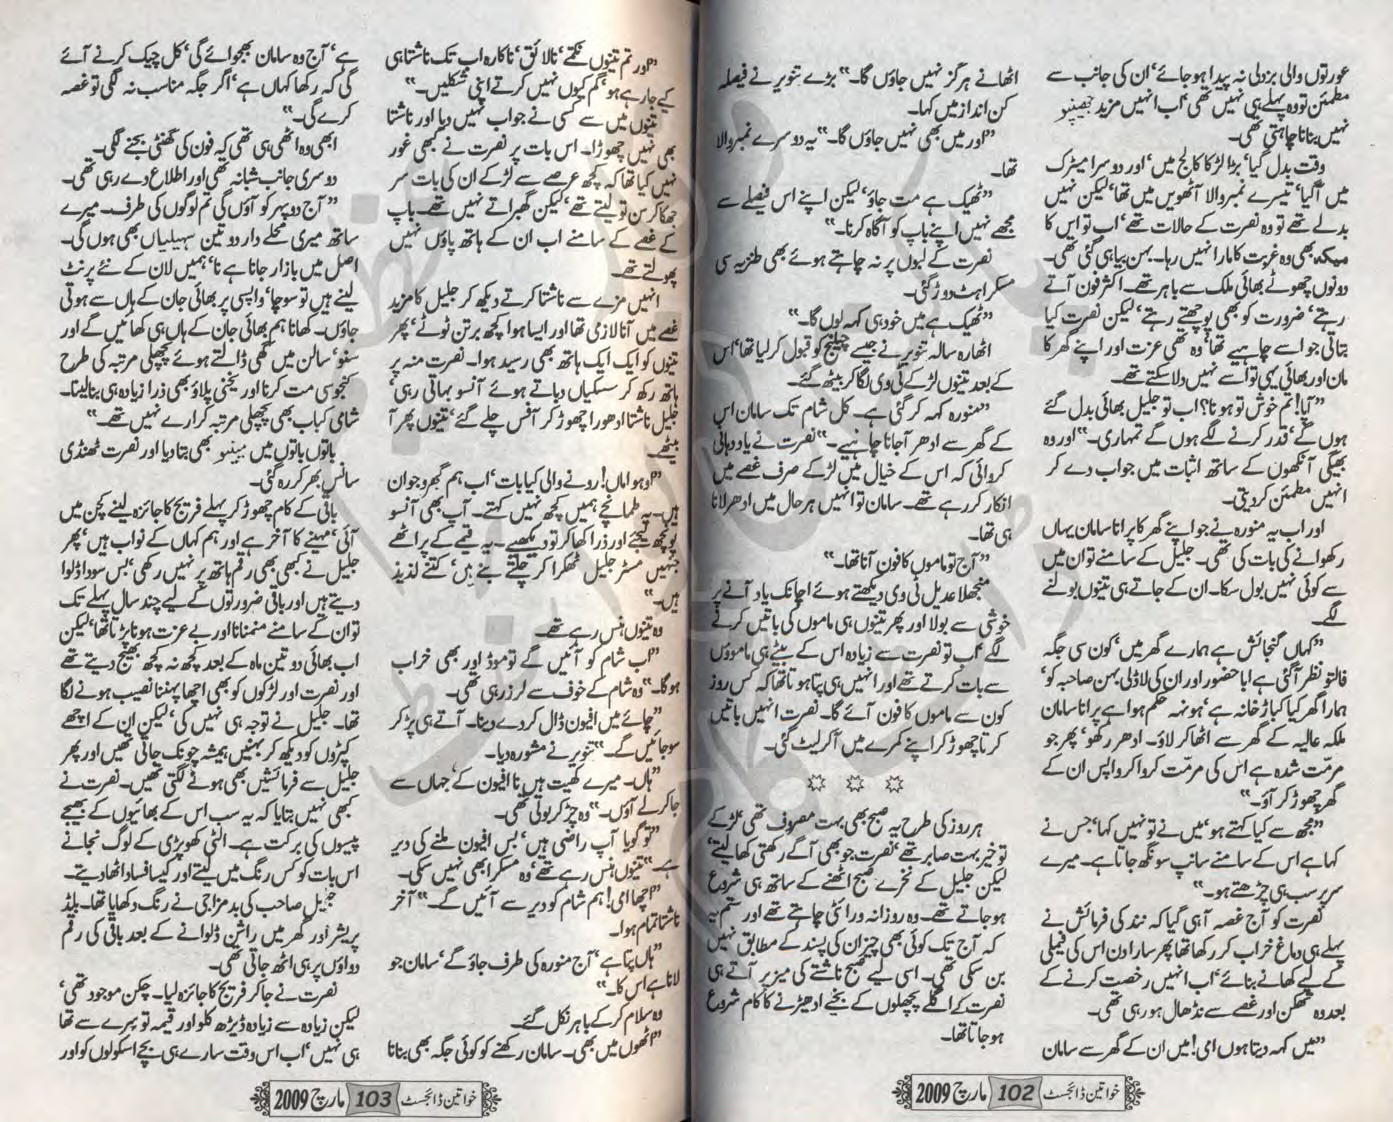 عورتوں والی بزدلی نہ پیدا ہو جائے‘ ان کی جانب سے
مطمئن تو وہ پہلے ہی نہیں تھی‘ اب انہیں مزید جھینپو
نہیں بنانا چاہتی تھی۔
وقت بدل گیا‘ بڑا لڑکا کالج میں‘ اور دوسرا میٹرک
میں آگیا‘ تیسرے نمبر والا آٹھویں میں تھا‘ لیکن نہیں
بدلے تھے تو وہ نصرت کے حالات تھے‘ اب تو اس کا
میکہ بھی وہ غربت کا مارا نہیں رہا۔ بہن بیاہی گئی تھی۔
دونوں چھوٹے بھائی ملک سے باہر تھے۔ اکثر فون آتے
رہتے‘ ضرورت کو بھی پوچھتے رہتے‘ لیکن نصرت کیا
بتاتی جو اسے چاہیے تھا‘ وہ تھی عزت اور اپنے گھر کا
مان اور بھائی یہی تو اسے نہیں دلا سکتے تھے۔
”آپا! تم خوش تو ہونا؟ اب تو جلیل بھائی بدل گئے
ہوں گے‘ قدر کرنے لگے ہوں گے تمہاری۔“ اور وہ
بھیگی آنکھوں کے ساتھ اثبات میں جواب دے کر
انہیں مطمئن کر دیتی۔
اور اب یہ منورہ نے جو اپنے گھر کا پرانا سامان یہاں
رکھوانے کی بات کی تھی۔ جلیل کے سامنے تو ان میں
سے کوئی نہیں بول سکا۔ ان کے جاتے ہی تینوں بولنے
لگے۔
”کہاں گنجائش ہے ہمارے گھر میں‘ کون سی جگہ
فالتو نظر آگئی ہے ابا حضور اور ان کی لاڈلی بہن صاحبہ کو‘
ہمارا گھر کیا کباڑ خانہ ہے‘ ہونہہ حکم ہوا ہے پرانا سامان
ملکہ عالیہ کے گھر سے اٹھا کر لاؤ۔ ادھر رکھو‘ پھر جو
مرمّت شدہ ہے اس کی مرمّت کروا کر واپس ان کے
گھر چھوڑ کر آؤ۔“
”مجھ سے کیا کہتے ہو‘ میں نے تو نہیں کہا‘ جس نے
کہا ہے اس کے سامنے سانپ سونگھ جاتا ہے۔ میرے
سر پر سب ہی چڑھتے ہو۔“
نصرت کو آج غصہ آ ہی گیا کہ نند کی فرمائش نے
پہلے ہی دماغ خراب کر رکھا تھا پھر سارا دن اس کی فیملی
کے لیے کھانے بنائے‘ اب انہیں رخصت کرنے کے
بعد وہ تھکن اور غصے سے نڈھال ہو رہی تھی۔
”میں کہہ دیتا ہوں امی! میں ان کے گھر سے سامان
اٹھانے ہرگز نہیں جاؤں گا۔“ بڑے تنویر نے فیصلہ
کن انداز میں کہا۔
”اور میں بھی نہیں جاؤں گا۔“ یہ دوسرے نمبر والا
تھا۔
”ٹھیک ہے مت جاؤ‘ لیکن اپنے اس فیصلے سے
مجھے نہیں اپنے باپ کو آگاہ کرنا۔“
نصرت کے لبوں پر نہ چاہتے ہوئے بھی طنزیہ سی
مسکراہٹ دوڑ گئی۔
”ٹھیک ہے میں خود ہی کہہ لوں گا۔“
اٹھارہ سالہ تنویر نے جیسے چیلنج کو قبول کر لیا تھا‘ اس
کے بعد تینوں لڑکے ٹی وی لگا کر بیٹھ گئے۔
”منورہ کہہ کر گئی ہے۔ کل شام تک سامان اس
کے گھر سے ادھر آجانا چاہیے۔“ نصرت نے یاد دہانی
کروائی کہ اس کے خیال میں لڑکے صرف غصے میں
انکار کر رہے تھے۔ سامان تو انہیں ہر حال میں ادھر لانا
ہی تھا۔
”آج تو ماموں کا فون آنا تھا۔“
منجھلا عدیل ٹی وی دیکھتے ہوئے اچانک یاد آنے پر
خوشی سے بولا اور پھر تینوں ہی ماموں کی باتیں کرنے
لگے‘ اب تو نصرت سے زیادہ اس کے بیٹے ہی ماموؤں
سے بات کرتے تھے اور انہیں ہی پتا ہوتا تھا کہ کس روز
کون سے ماموں کا فون آئے گا۔ نصرت انہیں باتیں
کرتا چھوڑ کر اپنے کمرے میں آکر لیٹ گئی۔
☼ ☼ ☼
ہر روز کی طرح یہ صبح بھی بہت مصروف تھی‘ لڑکے
تو خیر بہت صابر تھے‘ نصرت جو بھی آگے رکھتی کھا لیتے‘
لیکن جلیل کے نخرے صبح اٹھنے کے ساتھ ہی شروع
ہو جاتے تھے۔ وہ روزانہ ورائٹی چاہتے تھے اور ستم یہ
کہ آج تک کوئی بھی چیز ان کی پسند کے مطابق نہیں
بن سکی تھی۔ اسی لیے صبح ناشتے کی میز پر آتے ہی
نصرت کے اگلے پچھلوں کے بخیے ادھیڑنے کا کام شروع
ہو جاتا تھا۔
خواتین ڈائجسٹ 102 مارچ 2009
”اور تم تینوں نکمے‘ نالائق‘ ناکارہ اب تک ناشتا ہی
کیے جا رہے ہو‘ گم کیوں نہیں کرتے اپنی شکلیں۔“
تینوں میں سے کسی نے جواب نہیں دیا اور ناشتا
بھی نہیں چھوڑا۔ اس بات پر نصرت نے کبھی غور
نہیں کیا تھا کہ کچھ عرصے سے لڑکے ان کی بات سر
جھکا کر سن تو لیتے تھے‘ لیکن گھبراتے نہیں تھے۔ باپ
کے غصے کے سامنے اب ان کے ہاتھ پاؤں نہیں
پھولتے تھے۔
انہیں مزے سے ناشتا کرتے دیکھ کر جلیل کا مزید
غصے میں آنا لازمی تھا اور ایسا ہوا کچھ برتن ٹوٹے‘ پھر
تینوں کو ایک ایک ہاتھ بھی رسید ہوا۔ نصرت منہ پر
ہاتھ رکھ کر سسکیاں دباتے ہوئے آنسو بہاتی رہی‘
جلیل ناشتا ادھورا چھوڑ کر آفس چلے گئے‘ تینوں پھر آ
بیٹھے۔
”اوہو اماں! رونے والی کیا بات‘ اب ہم گبھرو جوان
ہیں۔ یہ طمانچے ہمیں کچھ نہیں کہتے۔ آپ بھی آنسو
پونچھ لیجئے اور ذرا کھا کر تو دیکھیے۔ یہ قیمے کے پراٹھے
جنہیں مسٹر جلیل ٹھکرا کر چلتے بنے ہیں‘ کتنے لذیذ
ہیں۔“
وہ تینوں ہنس رہے تھے۔
”اب شام کو آئیں گے تو موڈ اور بھی خراب
ہو گا۔“ وہ شام کے خوف سے لرز رہی تھی۔
”چائے میں افیون ڈال کر دے دینا۔ آتے ہی پڑ کر
سو جائیں گے۔“ تنویر نے مشورہ دیا۔
”ہاں۔ میرے کھیت ہیں نا افیون کے‘ جہاں سے
جا کر لے آؤں۔“ وہ چڑ کر بولی تھی۔
”تو گویا آپ راضی ہیں‘ بس افیون ملنے کی دیر
ہے۔“ تینوں ہنس رہے تھے‘ وہ مسکرا بھی نہیں سکی۔
”اچھا امی! ہم شام کو دیر سے آئیں گے۔“ آخر
ناشتا تمام ہوا۔
”ہاں پتا ہے‘ آج منورہ کی طرف جاؤ گے‘ سامان جو
لانا ہے اس کا۔“
وہ سلام کر کے باہر نکل گئے۔
”اٹھوں میں بھی۔ سامان رکھنے کو کوئی جگہ بھی بنانا
ہے‘ آج وہ سامان بھجوائے گی‘ کل چیک کرنے آئے
گی کہ رکھا کہاں ہے‘ اگر جگہ مناسب نہ لگی تو غصہ
کرے گی۔“
ابھی وہ اٹھی ہی تھی کہ فون کی گھنٹی بجنے لگی۔
دوسری جانب شبانہ تھی اور اطلاع دے رہی تھی۔
”آج دوپہر کو آؤں گی تم لوگوں کی طرف۔ میرے
ساتھ میری محلے دار دو تین سہیلیاں بھی ہوں گی۔
اصل میں بازار جانا ہے نا‘ ہمیں لان کے نئے پرنٹ
لینے ہیں تو سوچا‘ واپسی پر بھائی جان کے ہاں سے ہوتی
جاؤں۔ کھانا ہم بھائی جان کے ہاں ہی کھائیں گے اور
سنو‘ سالن میں گھی ڈالتے ہوئے پچھلی مرتبہ کی طرح
کنجوسی مت کرنا اور یخنی پلاؤ بھی ذرا زیادہ ہی بنا لینا۔
شامی کباب بھی پچھلی مرتبہ کرارے نہیں تھے۔“
باتوں باتوں میں مینو بھی بتا دیا اور نصرت ٹھنڈی
سانس بھر کر رہ گئی۔
باقی کے کام چھوڑ کر پہلے فریج کا جائزہ لینے کچن میں
آئی‘ مہینے کا آخر ہے اور ہم کہاں کے نواب ہیں‘ پھر
جلیل نے کبھی بھی رقم ہاتھ پر نہیں رکھی‘ بس سودا ڈلوا
دیتے ہیں اور باقی ضرورتوں کے لیے چند سال پہلے تک
تو ان کے سامنے منمنانا اور بے عزت ہونا پڑتا تھا‘ لیکن
اب بھائی دو تین ماہ کے بعد کچھ نہ کچھ بھیج دیتے تھے
اور نصرت اور لڑکوں کو بھی اچھا پہننا نصیب ہونے لگا
تھا۔ جلیل نے توجہ ہی نہیں کی‘ لیکن ان کے اچھے
کپڑوں کو دیکھ کر بہنیں ہمیشہ چونک جاتی تھیں اور پھر
جلیل سے فرمائشیں بھی ہونے لگتی تھیں۔ نصرت نے
کبھی نہیں بتایا کہ یہ سب اس کے بھائیوں کے بھیجے
پیسوں کی برکت ہے۔ الٹی کھوپڑی کے لوگ نجانے
اس بات کو کس رنگ میں لیتے اور کیسا فساد اٹھا دیتے۔
جلیل صاحب کی بد مزاجی نے رنگ دکھایا تھا۔ بلڈ
پریشر اور گھر میں راشن ڈلوانے کے بعد باقی کی رقم
دواؤں پر ہی اٹھ جاتی تھی۔
نصرت نے جا کر فریج کا جائزہ لیا۔ چکن موجود تھی‘
لیکن زیادہ سے زیادہ ڈیڑھ کلو اور قیمہ تو سرے سے تھا
ہی نہیں‘ اب اس وقت سارے ہی بچے اسکولوں کو اور
خواتین ڈائجسٹ 103 مارچ 2009